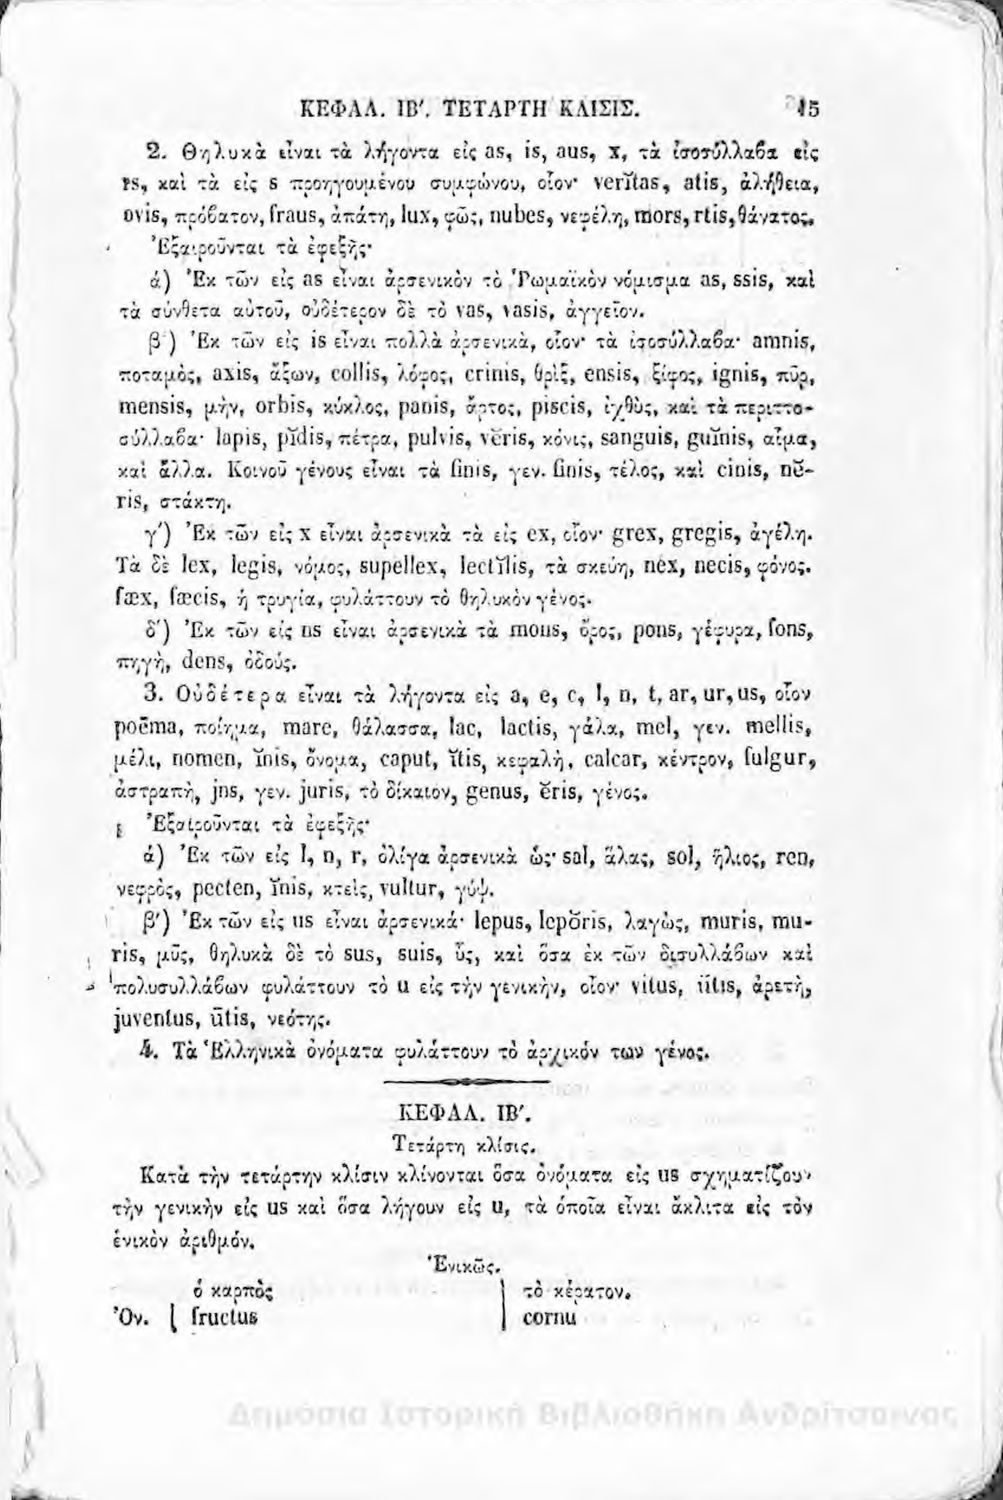 ΚΕΦΑΛ. ΙΒ'. ΤΕΤΑΡΤΗ ΚΛΙΣΙΣ. 45
2. Θηλυκὰ εἶναι τὰ λήγοντα εἰς as, is, aus, x, τὰ ἰσοσύλλαβα εἰς
es, καὶ τὰ εἰς s προηγουμένου συμφώνου, οἷον· verĭtas, atis, ἀλήθεια,
ovis, πρόβατον, fraus, ἀπάτη, lux, φῶς, nubes, νεφέλη, mors, rtis, θάνατος.
Ἐξαιροῦνται τὰ ἐφεξῆς·
ά) Ἐκ τῶν εἰς as εἶναι ἀρσενικὸν τὸ Ῥωμαϊκὸν νόμισμα as, ssis, καὶ
τὰ σύνθετα αὐτοῦ, οὐδέτερον δὲ τὸ vas, vasis, ἀγγεῖον.
β΄) Ἐκ τῶν εἰς is εἶναι πολλὰ ἀρσενικὰ, οἷον· τὰ ἰσοσύλλαβα· amnis,
ποταμὸς, axis, ἄξων, collis, λόφος, crinis, θρὶξ, ensis, ξίφος, ignis, πῦρ,
mensis, μὴν, orbis, κύκλος, panis, ἄρτος, piscis, ἰχθὺς, καὶ τὰ περιττο-
σύλλαβα· lapis, pĭdis, πέτρα, pulvis, vĕris, κόνις, sanguis, guĭnis, αἷμα,
καὶ ἄλλα. Κοινοῦ γένους εἶναι τὰ finis, γεν. finis, τέλος, καὶ cinis, nĕ-
ris, στάκτη.
γ΄) Ἐκ τῶν εἰς x εἶναι ἀρσενικὰ τὰ εἰς ex, οἷον· grex, gregis, ἀγέλη.
Τὰ δὲ lex, legis, νόμος, supellex, lectĭlis, τὰ σκεύη, nex, necis, φόνος.
fæx, fæcis, ἡ τρυγία, φυλάττουν τὸ θηλυκὸν γένος.
δ΄) Ἐκ τῶν εἰς ns εἶναι ἀρσενικὰ τὰ mons, ὄρος, pons, γέφυρα, fons,
πηγὴ, dens, ὀδούς.
3. Οὐδέτερα εἶναι τὰ λήγοντα εἰς a, e, c, l, n, t, ar, ur, us, οἷον
poēma, ποίημα, mare, θάλασσα, lac, lactis, γάλα, mel, γεν. mellis,
μέλι, nomen, ĭnis, ὄνομα, caput, ĭtis, κεφαλὴ, calcar, κέντρον, fulgur,
ἀστραπὴ, jus, γεν. juris, τὸ δίκαιον, genus, ĕris, γένος.
Ἐξαιροῦνται τὰ ἐφεξῆς·
ά) Ἐκ τῶν εἰς l, n, r, ὀλίγα ἀρσενικὰ ὡς· sal, ἅλας, sol, ἥλιος, ren,
νεφρὸς, pecten, ĭnis, κτεὶς, vultur, γύψ.
β΄) Ἐκ τῶν εἰς us εἶναι ἀρσενικά· lepus, lepŏris, λαγὼς, muris, mu-
ris, μῦς, θηλυκὰ δὲ τὸ sus, suis, ὗς, καὶ ὅσα ἐκ τῶν δισυλλάβων καὶ
πολυσυλλάβων φυλάττουν τὸ u εἰς τὴν γενικὴν, οἷον· vitus, ūtis, ἀρετὴ,
juventus, ūtis, νεότης.
4. Τὰ Ἑλληνικὰ ὀνόματα φυλάττουν τὸ ἀρχικόν των γένος.
ΚΕΦΑΛ. ΙΒ'.
Τετάρτη κλίσις.
Κατὰ τὴν τετάρτην κλίσιν κλίνονται ὅσα ὀνόματα εἰς us σχηματίζουν
τὴν γενικὴν εἰς us καὶ ὅσα λήγουν εἰς u, τὰ ὁποῖα εἶναι ἄκλιτα εἰς τὸν
ἑνικὸν ἀριθμόν.
Ἑνικῶς.
ὁ καρπὸς | τὸ κέρατον.
Ὀν. { fructus | cornu
Δημόσια Ιστορική Βιβλιοθήκη Ανδρίτσαινας